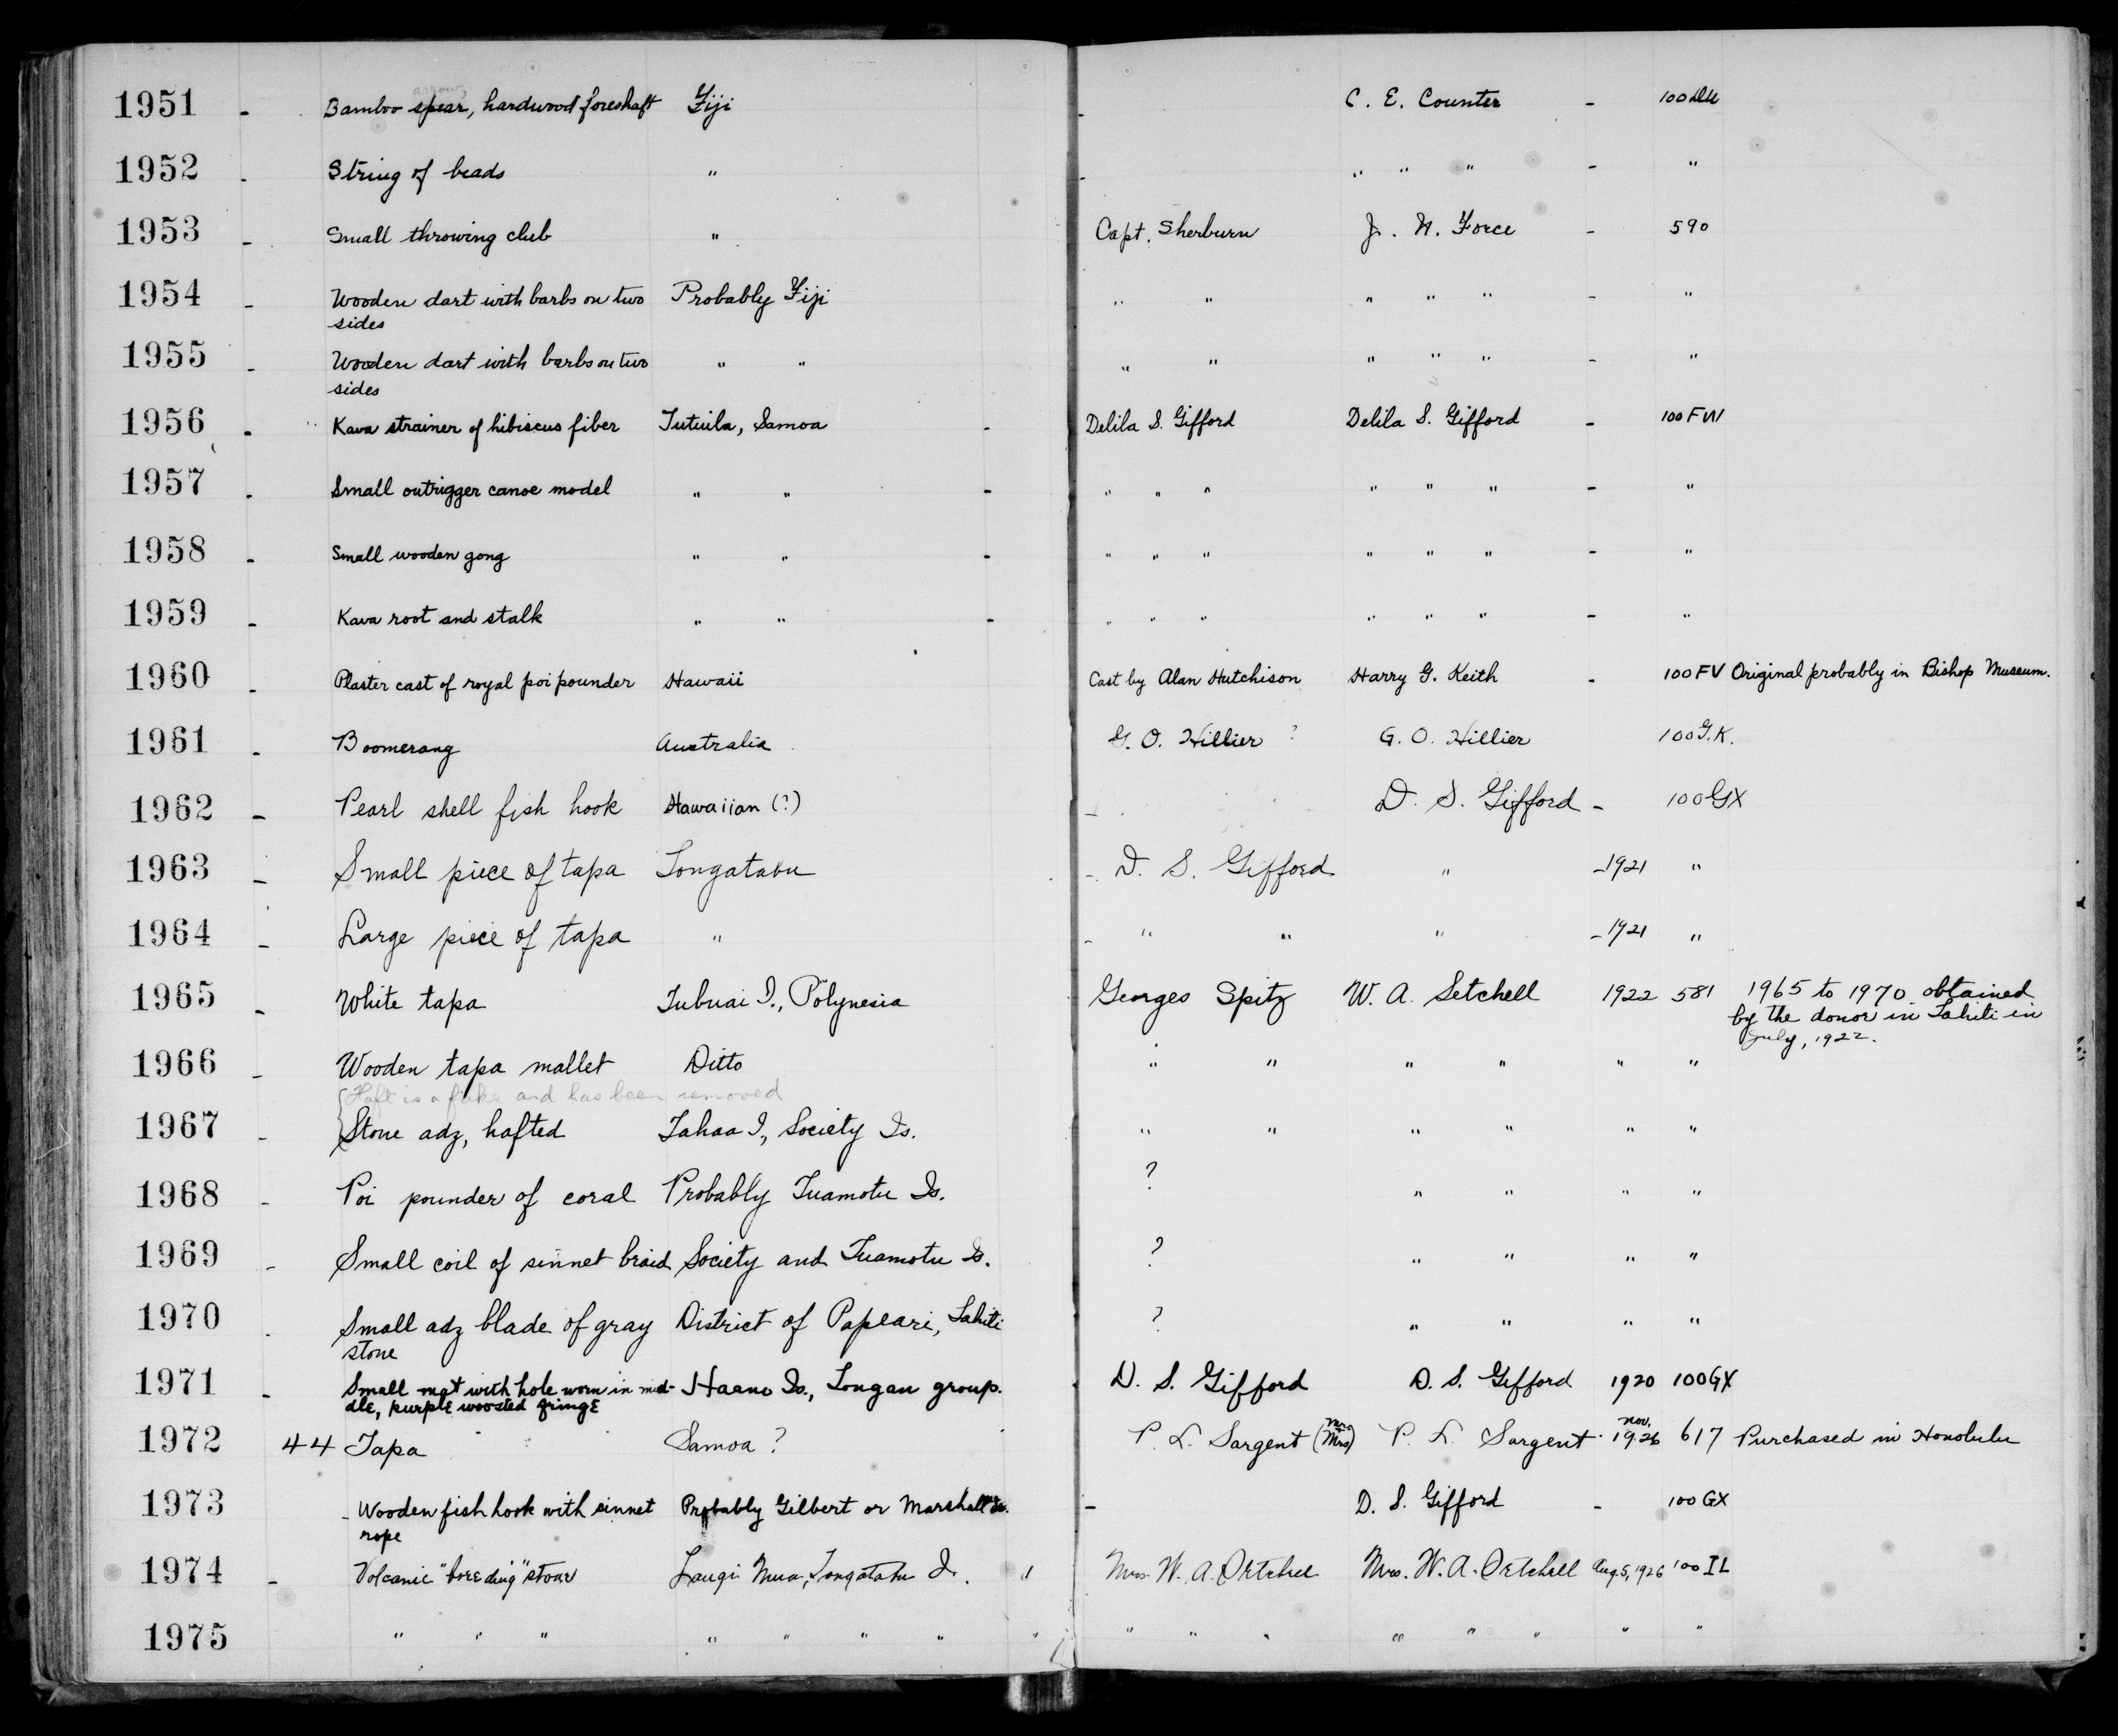 1951 - Bamboo spear, hardwood foreshaft Fiji - C. E. Counter - 100
1952 - String of beads " - " " " - "
1953 - Small throwing club " Capt. Sherburn J. N. Force - 590
1954 - Wooden dart with barbs on two Probably Fiji " " " " " - "
sides
1955 - Wooden dart with barbs on two " " " " " " " - "
sides
1956 - Kava strainer of hibiscus fiber Tutuila, Samoa - Delila S. Gifford Delila S. Gifford - 100 FW
1957 - Small outrigger canoe model " " - " " " " " " - "
1958 - Small wooden gong " " - " " " " " " - "
1959 - Kava root and stalk " " - " " " " " " - "
1960 - Plaster cast of royal poi pounder Hawaii Cast by Alan Hutchison Harry G. Keith - 100 FV Original probably in Bishop Museum.
1961 - Boomerang Australia G. O. Hillier ? G. O. Hillier 100 G.K.
1962 - Pearl shell fish hook Hawaiian (?) - D. S. Gifford - 100GX
1963 - Small piece of tapa Tongatabu - D. S. Gifford " - 1921 "
1964 - Large piece of tapa " - " " " - 1921 "
1965 - White tapa Tubuai I., Polynesia Georges Spitz W. A. Setchell 1922 581 1965 to 1970 obtained
by the donor in Tahiti in
July, 1922.
1966 - Wooden tapa mallet Ditto " " " " " "
Haft is a fake and has been removed
1967 - Stone adz, hafted Tahaa I., Society Is. " " " " " "
1968 - Poi pounder of coral Probably Tuamotu Is. ? " " " "
1969 - Small coil of sinnet braid Society and Tuamotu Is. ? " " " "
1970 - Small adz blade of gray District of Papeari, Tahiti ? " " " "
stone
1971 - Small mat with hole worn in mid- Haano Is., Tongan group. D. S. Gifford D. S. Gifford 1920 100GX
dle, purple woosted fringe
1972 44 Tapa Samoa ? P. L. Sargent (Mrs) P. L. Sargent Nov. 1926 617 Purchased in Honolulu
1973 - Wooden fish hook with sinnet Probably Gilbert or Marshall Is. - D. S. Gifford - 100 GX
rope
1974 - Volcanic stone Langi Mua, Tongatabu I. " Mrs. W. A. Setchell Mrs. W. A. Setchell Aug. 5, 1926 100 IL
1975 " " " " " " " " " " " " " " " "